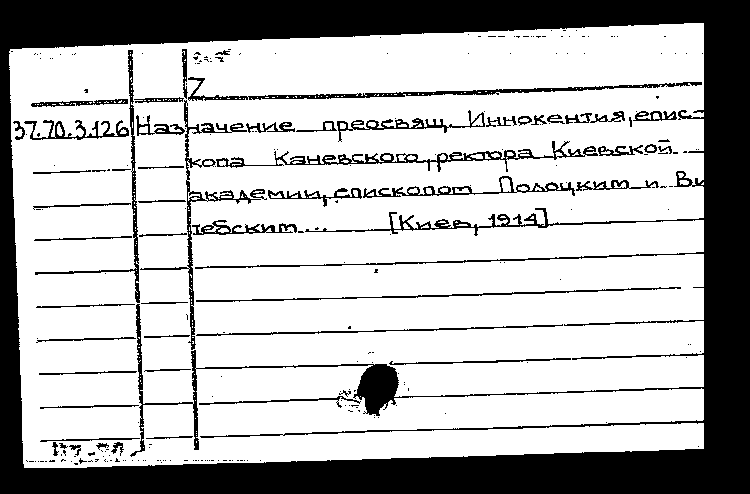 Z
37.70.3.126 Назначение преосвящ. Иннокентия, епис-
копа Каневского, ректора Киевской
академии, епископом Полоцким и Ви
тебским... [Киев, 1914]